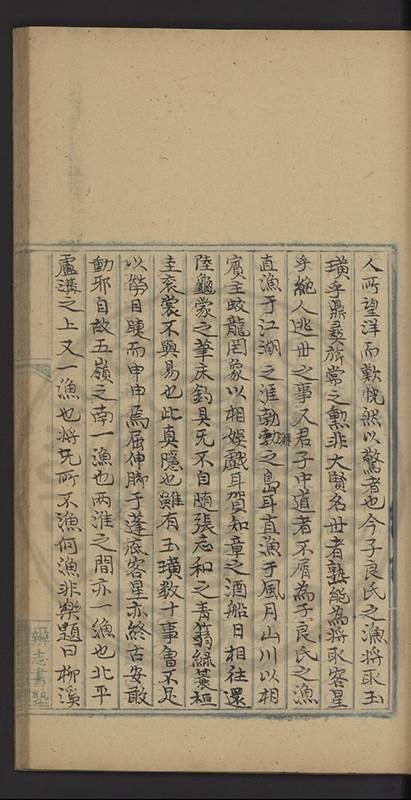 人所望洋而歎恍然以驚者也今子良氏之漁將取玉
璜乎鼎彞旂常之勲非大賢名世者孰能為將取客星
乎絶人逃世之事又君子中道者不屑為子良氏之漁
直漁于江湖之涯勃澥之島耳直漁于風月山川以相
賓主蛟龍罔象以相娛戲耳賀知章之酒船日相往還
陸龜蒙之筆床釣具无不自随張志和之青蒻緑蓑桓
圭衮裳不與易也此真隱也雖有玉璜数十事曾不足
以勞目睫而申申焉屈伸脚于蓬底客星亦終古安敢
動耶自故五嶺之南一漁也两淮之間亦一漁也北平
盧溝之上又一漁也将无所不漁何漁非樂題曰柳溪
志書塾